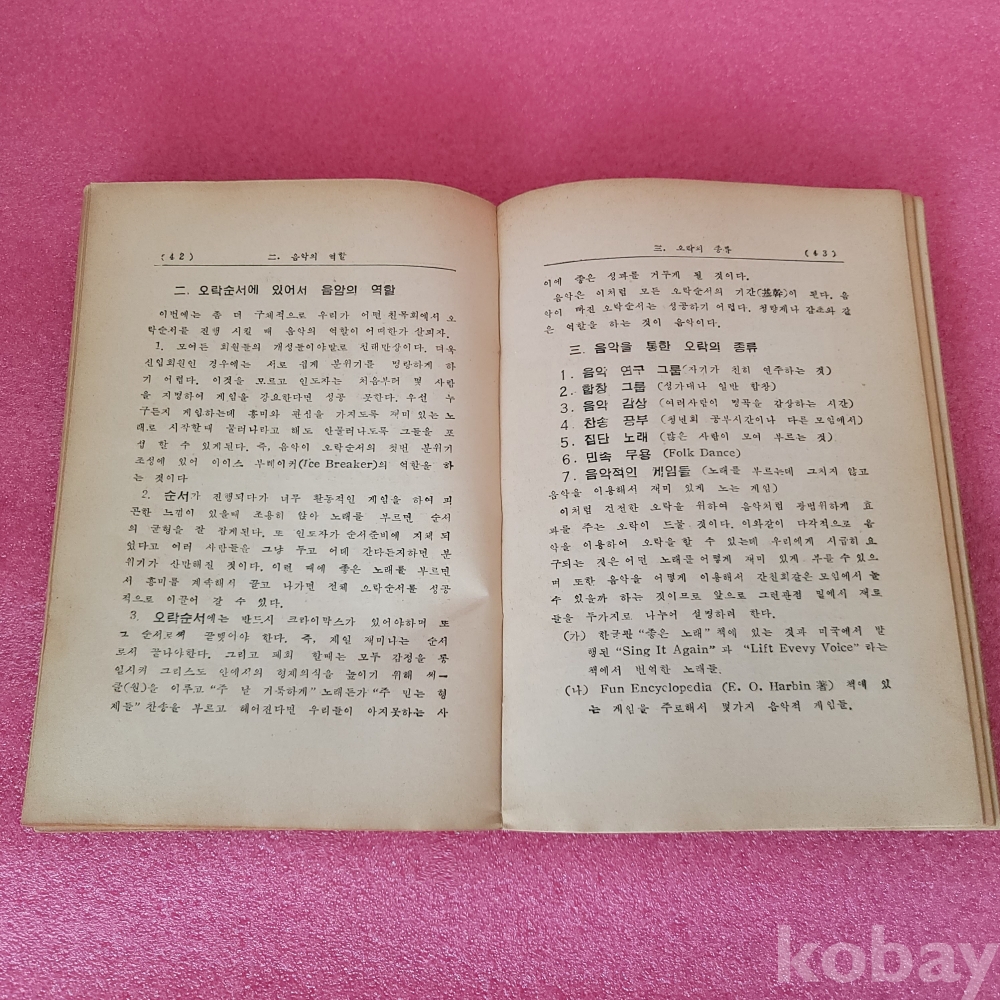 (42) 二. 음악의 역할
二. 오락순서에 있어서 음악의 역할
이번에는 좀 더 구체적으로 우리가 어떤 친목회에서 오
락순서를 진행 시킬 때 음악의 역할이 어떠한가 살피자.
1. 모여든 회원들의 개성들이야말로 천태만상이다. 더욱
신입회원인 경우에는 서로 쉽게 분위기를 명랑하게 하
기 어렵다. 이것을 모르고 인도자는 처음부터 몇 사람
을 지명하여 게임을 강요한다면 성공 못한다. 우선 누
구든지 게임하는데 흥미와 관심을 가지도록 재미 있는 노
래로 시작할때 물러나라고 해도 안물러나도록 그들을 포
섭 할 수 있게된다. 즉, 음악이 오락순서의 첫번 분위기
조성에 있어 아이스 부레이커(Ice Breaker)의 역할을 하
는 것이다
2. 순서가 진행되다가 너무 활동적인 게임을 하여 피
곤한 느낌이 있을때 조용히 앉아 노래를 부르면 순서
의 균형을 잘 잡게된다. 또 인도자가 순서준비에 지체 되
있다고 여러 사람들을 그냥 두고 어데 간다든지하면 분
위기가 산만해진 것이다. 이런 때에 좋은 노래를 부르면
서 흥미를 계속해서 끌고 나가면 전체 오락순서를 성공
적으로 이끌어 갈 수 있다.
3. 오락순서에는 반드시 크라이막스가 있어야하며 또
그 순서로써 끝맺어야 한다. 즉, 제일 재미나는 순서
로서 끝나야한다. 그리고 폐회 할때는 모두 감정을 통
일시켜 그리스도 안에서의 형제의식을 높이기 위해 써ー
클(원)을 이루고 “주 난 거룩하게” 노래든가 “주 믿는 형
제들” 찬송을 부르고 헤어진다면 우리들이 아지못하는 사
三. 오락의 종류 (43)
이에 좋은 성과를 거두게 될 것이다.
음악은 이처럼 모든 오락순서의 기간(基幹)이 된다. 음
악이 빠진 오락순서는 성공하기 어렵다. 청량제나 감초와 같
은 역할을 하는 것이 음악이다.
三. 음악을 통한 오락의 종류
1. 음악 연구 그룹 (자기가 친히 연주하는 것)
2. 합창 그룹 (성가대나 일반 합창)
3. 음악 감상 (여러사람이 명곡을 감상하는 시간)
4. 찬송 공부 (청년회 공부시간이나 다른 모임에서)
5. 집단 노래 (많은 사람이 모여 부르는 것)
6. 민속 무용 (Folk Dance)
7. 음악적인 게임들 (노래를 부르는데 그치지 않고
음악을 이용해서 재미 있게 노는 게임)
이처럼 건전한 오락을 위하여 음악처럼 광범위하게 효
과를 주는 오락이 드물 것이다. 이와같이 다각적으로 음
악을 이용하여 오락을 할 수 있는데 우리에게 시급히 요
구되는 것은 어떤 노래를 어떻게 재미 있게 부를 수 있으
며 또한 음악을 어떻게 이용해서 간친회같은 모임에서 놀
수 있을까 하는 것이므로 앞으로 그런관점 밑에서 재료
들을 두가지로 나누어 설명하려 한다.
(가) 한국판 “좋은 노래” 책에 있는 것과 미국에서 발
행된 “Sing It Again” 과 “Lift Evevy Voice” 라는
책에서 번역한 노래들.
(나) Fun Encyclopedia (E. O. Harbin 著) 책에 있
는 게임을 주로해서 몇가지 음악적 게임들.
kobay